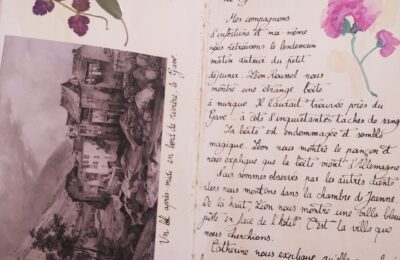 Un bel après-midi en bord de rivière, le Gave.
Mes compagnons
d'infortune et moi-même
nous retrouvons le lendemain
matin autour du petit
déjeuner. Léon Roussel nous
montre une étrange boîte
à musique. Il l'aurait trouvée près du
Gave à côté d'inquiétantes tâches de sang.
La boîte est endommagée et semble
magique. Léon nous montre le poinçon et
nous explique que la boîte vient d'Allemagne.
Nous sommes observés par les autres clients
alors nous montons dans la chambre de Jeanne.
De là haut, Léon nous montre une villa bleue
juste en face de l'hôtel. C'est la villa que
nous cherchions.
Catherine nous explique qu'elle